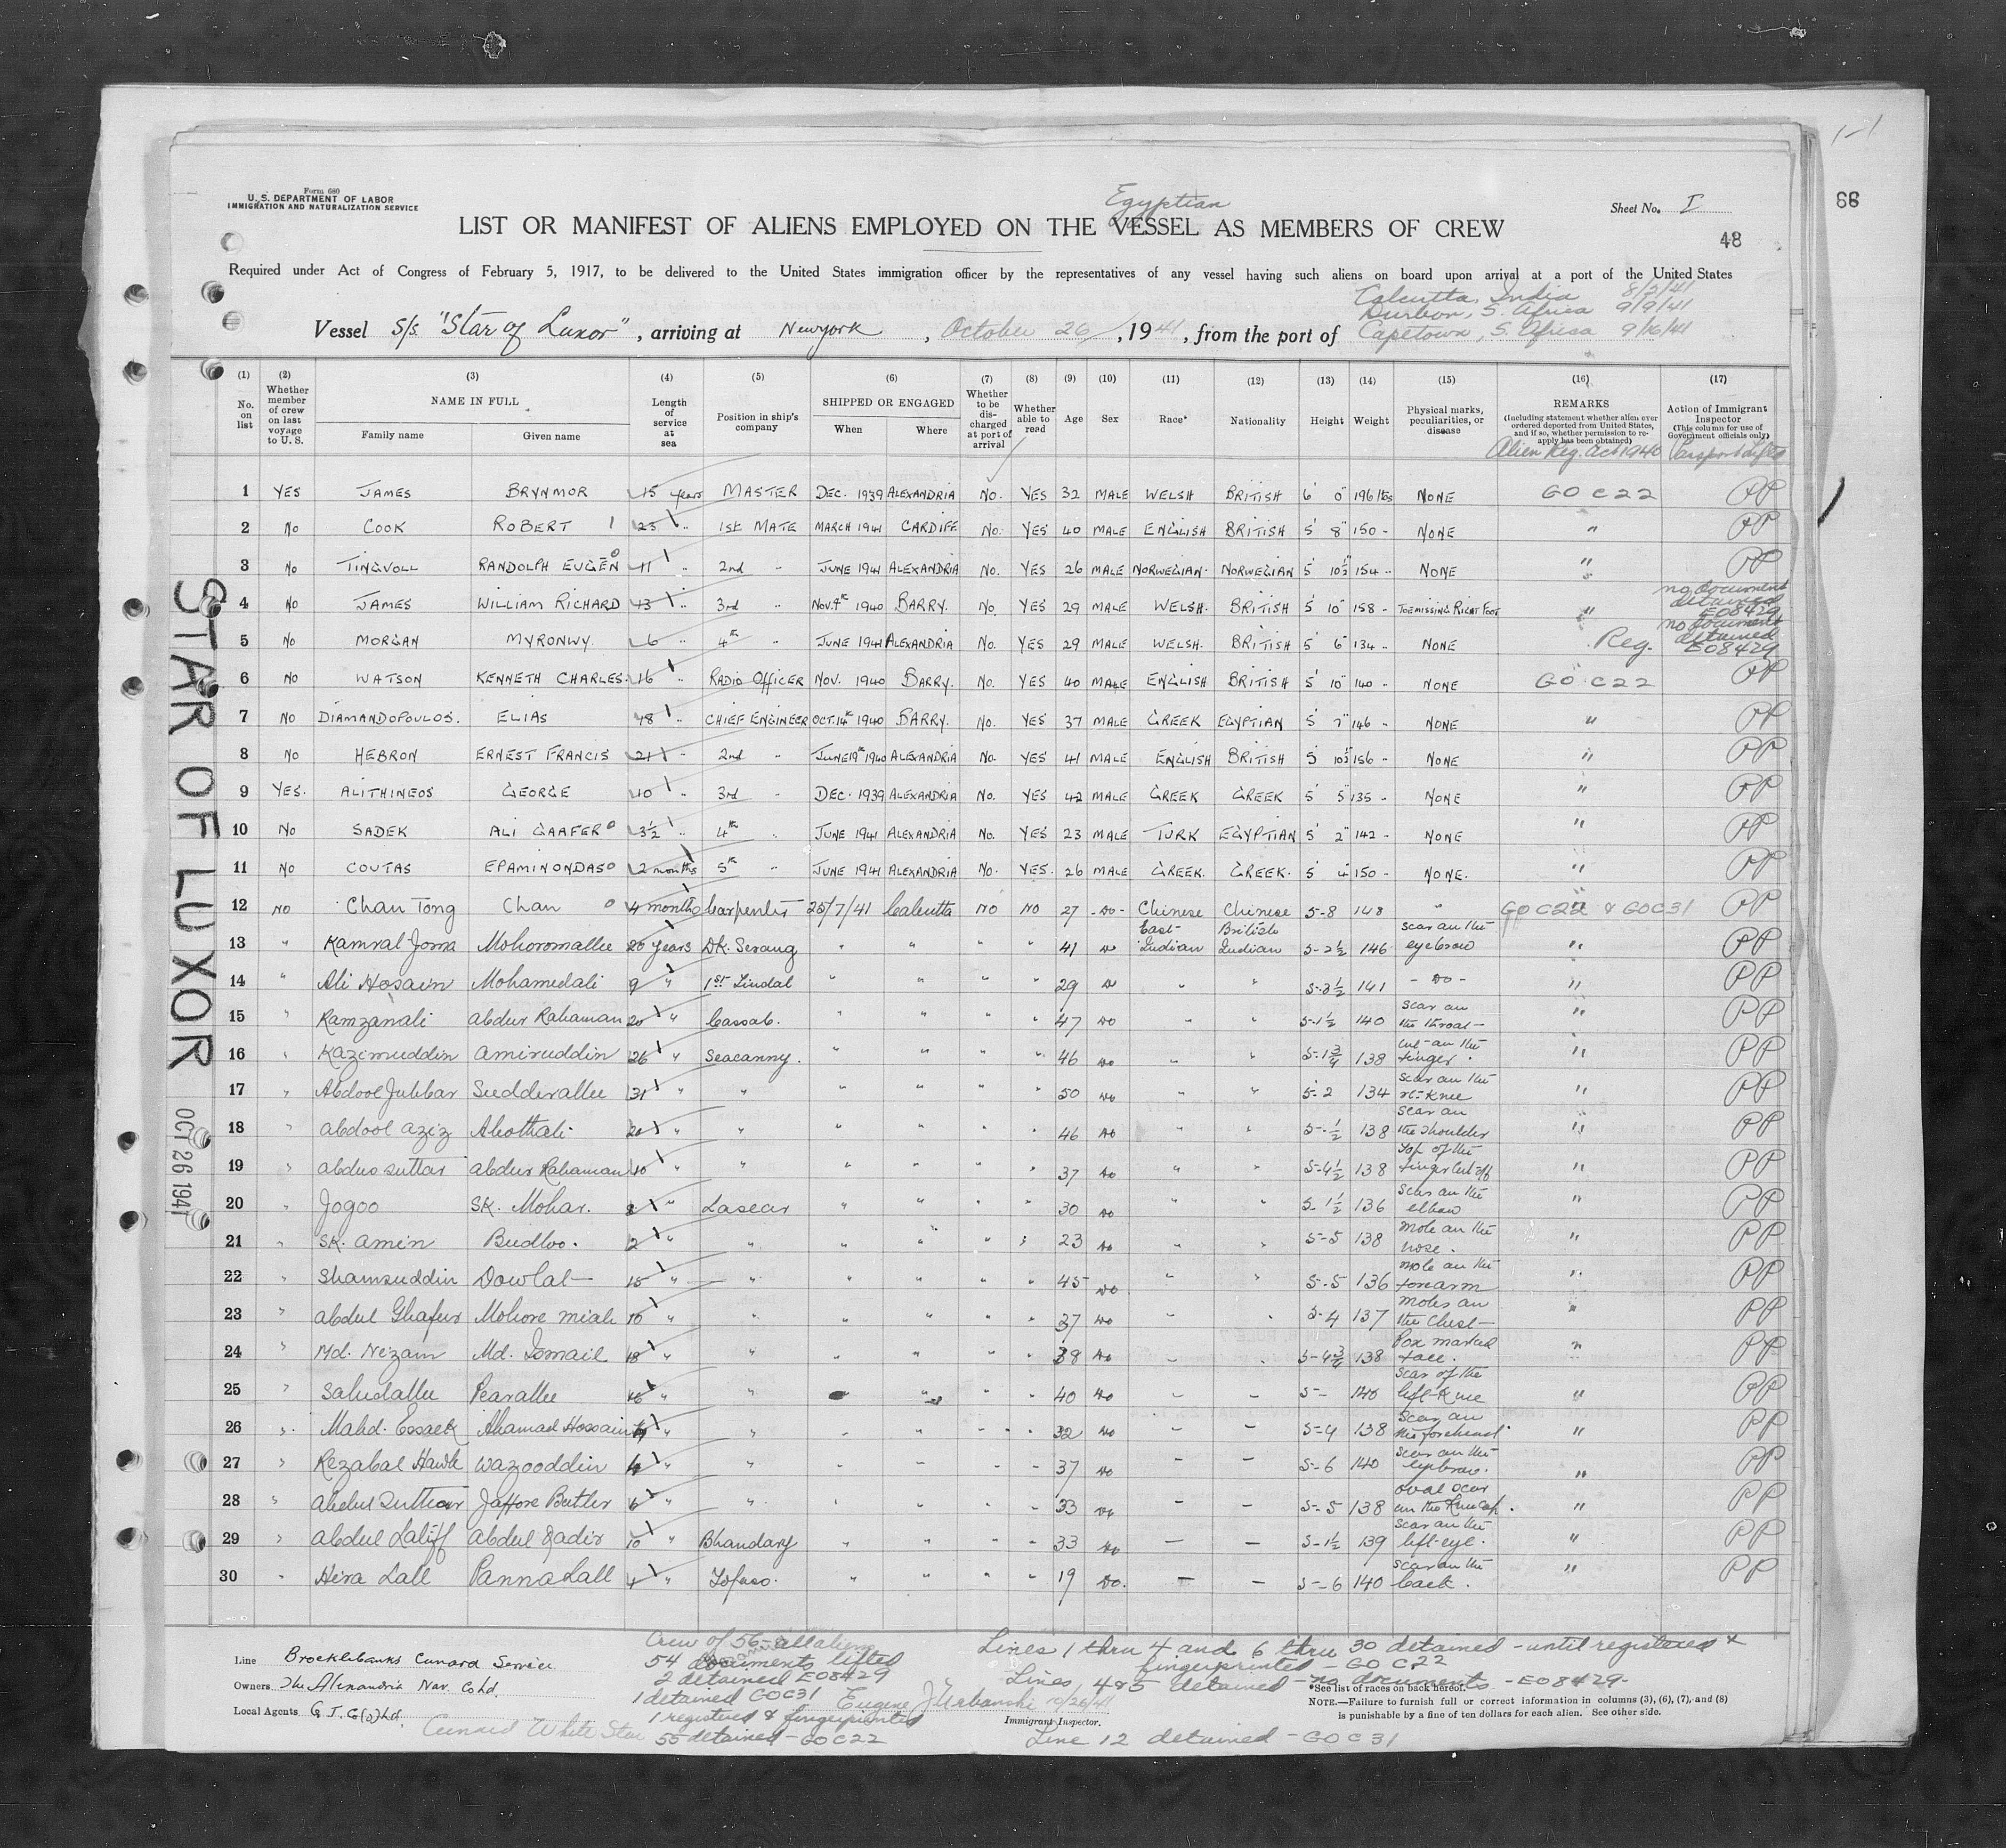 1-1
66
Form 680
U. S. DEPARTMENT OF LABOR
IMMIGRATION AND NATURALIZATION SERVICE
Egyptian
Sheet No. I
LIST OR MANIFEST OF ALIENS EMPLOYED ON THE VESSEL AS MEMBERS OF CREW
48
Required under Act of Congress of February 5, 1917, to be delivered to the United States immigration officer by the representatives of any vessel having such aliens on board upon arrival at a port of the United States
Calcutta, India 8/2/41
Durban, S. Africa 9/9/41
Vessel S/s. "Star of Luxor", arriving at Newyork, October 26, 1941, from the port of Capetown, S. Africa 9/16/41
(1) (2) (3) (4) (5) (6) (7) (8) (9) (10) (11) (12) (13) (14) (15) (16) (17)
No. on list
Whether member of crew on last voyage to U. S.
NAME IN FULL
Family name
Given name
Length of service at sea
Position in ship's company
SHIPPED OR ENGAGED
When
Where
Whether to be discharged at port of arrival
Whether able to read
Age
Sex
Race*
Nationality
Height
Weight
Physical marks, peculiarities, or disease
REMARKS
(Including statement whether alien ever ordered deported from United States, and if so, whether permission to reapply has been obtained)
Alien Reg. Act 1940
Action of Immigrant Inspector
(This column for use of Government officials only)
Passport Lifted
1 YES JAMES BRYNMOR 15 years MASTER DEC. 1939 ALEXANDRIA No. YES 32 MALE WELSH BRITISH 6' 0" 196 lbs NONE GO C22 PP
2 No COOK ROBERT 25 " 1st MATE MARCH 1941 CARDIFF No. YES 40 MALE ENGLISH BRITISH 5' 8" 150 - NONE " PP
3 No TINGVOLL RANDOLPH EUGEN 11 " 2nd " JUNE 1941 ALEXANDRIA No. YES 26 MALE NORWEGIAN NORWEGIAN 5' 10½" 154 - NONE " PP
4 No JAMES WILLIAM RICHARD 13 " 3rd " Nov. 9th 1940 BARRY. No YES 29 MALE WELSH. BRITISH 5' 10" 158 - TOE MISSING RIGHT FOOT " no document detained E08429
5 No MORGAN MYRONWY. 6 " 4th " JUNE 1941 ALEXANDRIA No. YES 29 MALE WELSH. BRITISH 5' 6" 134 - NONE Reg. no document detained E08429
6 No WATSON KENNETH CHARLES. 16 " RADIO OFFICER NOV. 1940 BARRY. No. YES 40 MALE ENGLISH BRITISH 5' 10" 140 - NONE GO C22 PP
7 No DIAMANDOPOULOS. ELIAS 18 " CHIEF ENGINEER OCT. 14th 1940 BARRY. No. YES 37 MALE GREEK EGYPTIAN 5' 7" 146 - NONE " PP
8 No HEBRON ERNEST FRANCIS 21 " 2nd " JUNE 19th 1940 ALEXANDRIA No. YES 41 MALE ENGLISH BRITISH 5 10½" 156 - NONE " PP
9 YES. ALITHINEOS GEORGE 10 " 3rd " DEC. 1939 ALEXANDRIA No. YES 42 MALE GREEK GREEK 5' 5" 135 - NONE " PP
10 No SADEK ALI GAAFER 3½ " 4th " JUNE 1941 ALEXANDRIA No. YES 23 MALE TURK EGYPTIAN 5' 2" 142 - NONE " PP
11 No COUTAS EPAMINONDAS 2 months 5th " JUNE 1941 ALEXANDRIA No. YES. 26 MALE GREEK. GREEK. 5' 4" 150 - NONE. " PP
12 NO Chan Tong Chan 4 months Carpenter 25/7/41 Calcutta NO NO 27 -Do- Chinese Chinese 5-8 148 " GO C22 & GOC31 PP
13 " Kamral Joma Mohoromallee 20 years Dk. Serang " " " " 41 Do East-Indian British Indian 5-2½ 146 scar on the eyebrow " PP
14 " Ali Hosain Mohamedali 9 " 1st Tindal " " " " 29 Do " " 5-3½ 141 - Do - " PP
15 " Ramzanali abdur Rahaman 20 " Cassab. " " " " 47 Do " " 5-1½ 140 scar on the throat " PP
16 " Kazimuddin amiruddin 26 " Seacunny. " " " " 46 Do " " 5-1¾ 138 cut on the finger. " PP
17 " Abdool Jubbar Sudderallee 31 " " " " " " 50 Do " " 5-2 134 scar on the rt-knee " PP
18 " abdool aziz Ahothali 20 " " " " " " 46 Do " " 5-½ 138 scar on the shoulder " PP
19 " abdus suttar abdur Rahaman 10 " " " " " " 37 Do " " 5-4½ 138 top of the finger cut off " PP
20 " Jogoo SK. Mohar. 8 " Lascar " " " " 30 Do " " 5-1½ 136 scar on the elbow " PP
21 " SK. amin Budloo. 2 " " " " " " 23 Do " " 5-5 138 mole on the nose. " PP
22 " Shamsuddin Dowlat 15 " " " " " " 45 Do " " 5-5 136 mole on the forearm " PP
23 " abdul Ghafur Mohore miah 10 " " " " " " 37 Do " " 5-4 137 moles on the chest " PP
24 " Md. Nezam Md. Ismail 18 " " " " " " 38 Do " " 5-4¾ 138 Pox marked face. " PP
25 " Saludallee Pearallee 16 " " " " " 40 Do - - 5- 140 scar of the left-knee " PP
26 " Mahd. Essack Ahamad Hossain " " " " " " 32 Do - - 5-4 138 scar on the forehead " PP
27 " Rezabal Hawk Wazooddin 4 " " " " " " 37 Do - - 5-6 140 scar on the eyebrow. " PP
28 " abdul Suttar Jaffore Butler 6 " " " " " " 33 Do - - 5-5 138 oval scar on the knee cap. " PP
29 " abdul Latiff abdul Kadir 10 " Bhandary " " " " 33 Do - - 5-1½ 139 scar on the left-eye. " PP
30 " Hira Lall Panna Lall 4 " Topass. " " " " 19 Do. - - 5-6 140 scar on the back. " PP
STAR OF LUXOR
OCT 26 1941
Line Brocklebanks Cunard Service
Owners The Alexandria Nav. Co Ld.
Local Agents
Cunard White Star
Crew of 56 - all aliens
54 documents lifted
2 detained E08429
1 detained GOC31
1 registered & fingerprinted
55 detained - GO C22
Eugene J Urbanski 10/26/41
Immigrant Inspector.
Lines 1 thru 4 and 6 thru 30 detained - until registered & fingerprinted - GO C22
Lines 4&5 detained - no documents - E08429-
Line 12 detained - GO C31
*See list of races on back hereof.
NOTE.—Failure to furnish full or correct information in columns (3), (6), (7), and (8)
is punishable by a fine of ten dollars for each alien. See other side.